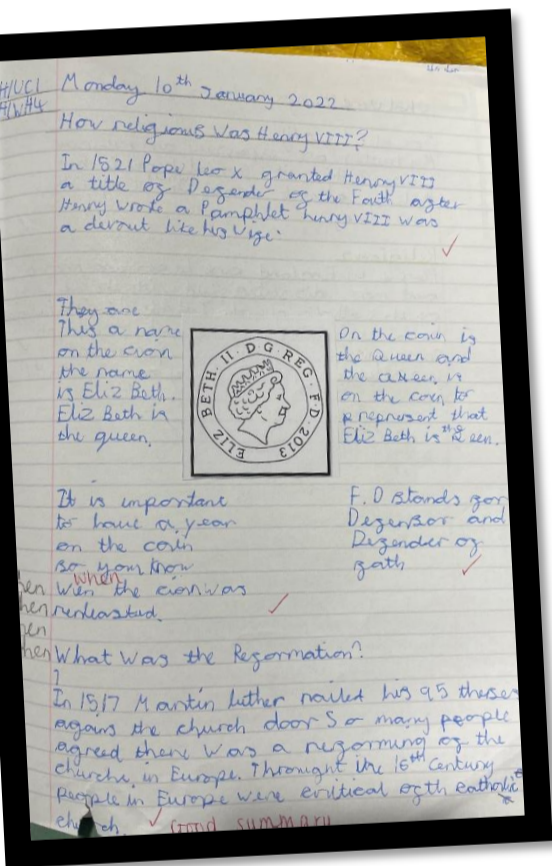 H/UC1 Monday 10th January 2022
H/WH4
How religious was Henry VIII?
In 1521 Pope leo x granted Henry VIII
a title of Defender of the Faith after
Henry wrote a Pamphlet henry VIII was
a devout like his
They are
This a name
on the cion
the name
is Eliz Beth.
Eliz Beth is
the queen.
ELIZ BETH·II·D·G·REG·F·D·2013
On the coin is
the Queen and
the queen is
on the coin to
represent that
Eliz Beth is the Queen.
It is important
to have a year
on the coin
so you know
when
wen the cion was
renleasted.
F.D stands for
Defensor and
Defender of
faith
What was the Reformation?
In 1517 Martin luther nailed his 95 theses
agains the church door So many people
agreed there was a reforming of the
church in Europe. Throught the 16th Century
people in Europe were critical of th catholic
church.
Good summary